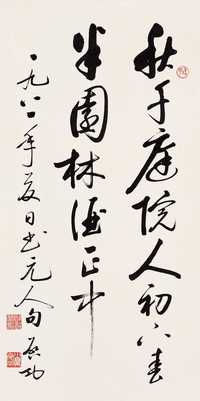 秋千庭院人初下春
半园林酒正中
一九八一年夏日书元人句启功